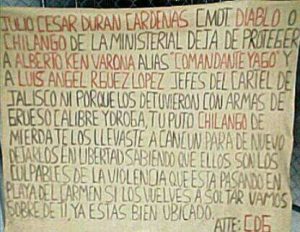 JULIO CESAR DURAN CARDENAS CMDT DIABLO O
CHILANGO DE LA MINISTERIAL DEJA DE PROTEGER
A ALBERTO KEN VARONA ALIAS "COMANDANTE YAGO" Y
A LUIS ANGEL RGUEZ LOPEZ JEFES DEL CARTEL DE
JALISCO NI PORQUE LOS DETUVIERON CON ARMAS DE
GRUESO CALIBRE Y DROGA, TU PUTO CHILANGO DE
MIERDA TE LOS LLEVASTE A CANCUN PARA DE NUEVO
DEJARLOS EN LIBERTAD SABIENDO QUE ELLOS SON LOS
CULPABLES DE LA VIOLENCIA QUE ESTA PASANDO EN
PLAYA DEL CARMEN SI LOS VUELVES A SOLTAR VAMOS
SOBRE DE TI YA ESTAS BIEN UBICADO.
ATTE: CDG